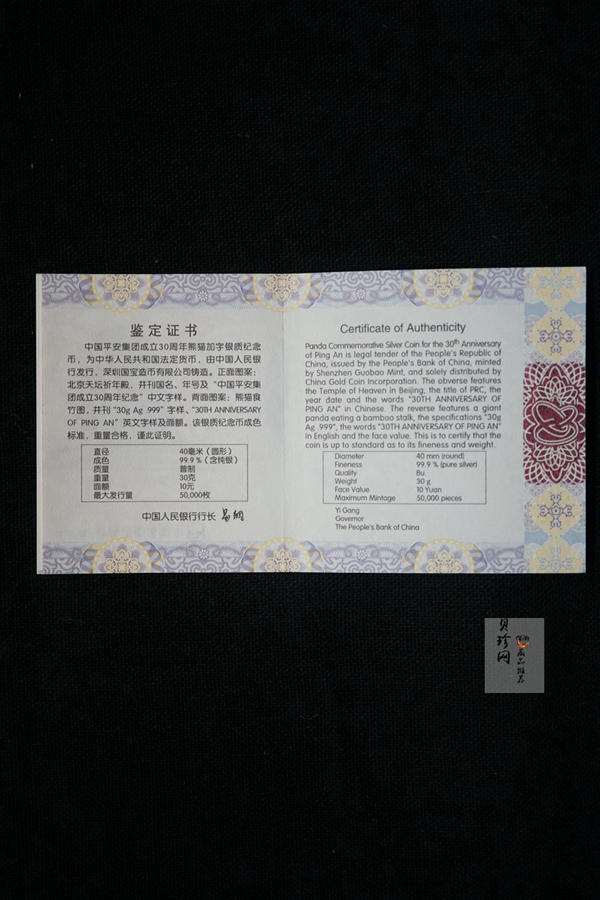 鉴定证书
中国平安集团成立30周年熊猫加字银质纪念
币，为中华人民共和国法定货币，由中国人民银
行发行，深圳国宝造币有限公司铸造。正面图案：
北京天坛祈年殿，并刊国名、年号及“中国平安集
团成立30周年纪念”中文字样。背面图案：熊猫食
竹图，并刊“30g Ag .999”字样、“30TH ANNIVERSARY
OF PING AN”英文字样及面额。该银质纪念币成色
标准，重量合格，谨此证明。
直径 40毫米（圆形）
成色 99.9％（含纯银）
质量 普制
重量 30克
面额 10元
最大发行量 50,000枚
中国人民银行行长 易纲
Certificate of Authenticity
Panda Commemorative Silver Coin for the 30th Anniversary
of Ping An is legal tender of the People's Republic of
China, issued by the People's Bank of China, minted
by Shenzhen Guobao Mint, and solely distributed by
China Gold Coin Incorporation. The obverse features
the Temple of Heaven in Beijing, the title of PRC, the
year date and the words "30TH ANNIVERSARY OF
PING AN" in Chinese. The reverse features a giant
panda eating a bamboo stalk, the specifications "30g
Ag .999", the words "30TH ANNIVERSARY OF PING AN"
in English and the face value. This is to certify that the
coin is up to standard as to its fineness and weight.
Diameter 40 mm (round)
Fineness 99.9 % (pure silver)
Quality Bu.
Weight 30 g
Face Value 10 Yuan
Maximum Mintage 50,000 pieces
Yi Gang
Governor
The People's Bank of China
贝珍网
藏品推荐